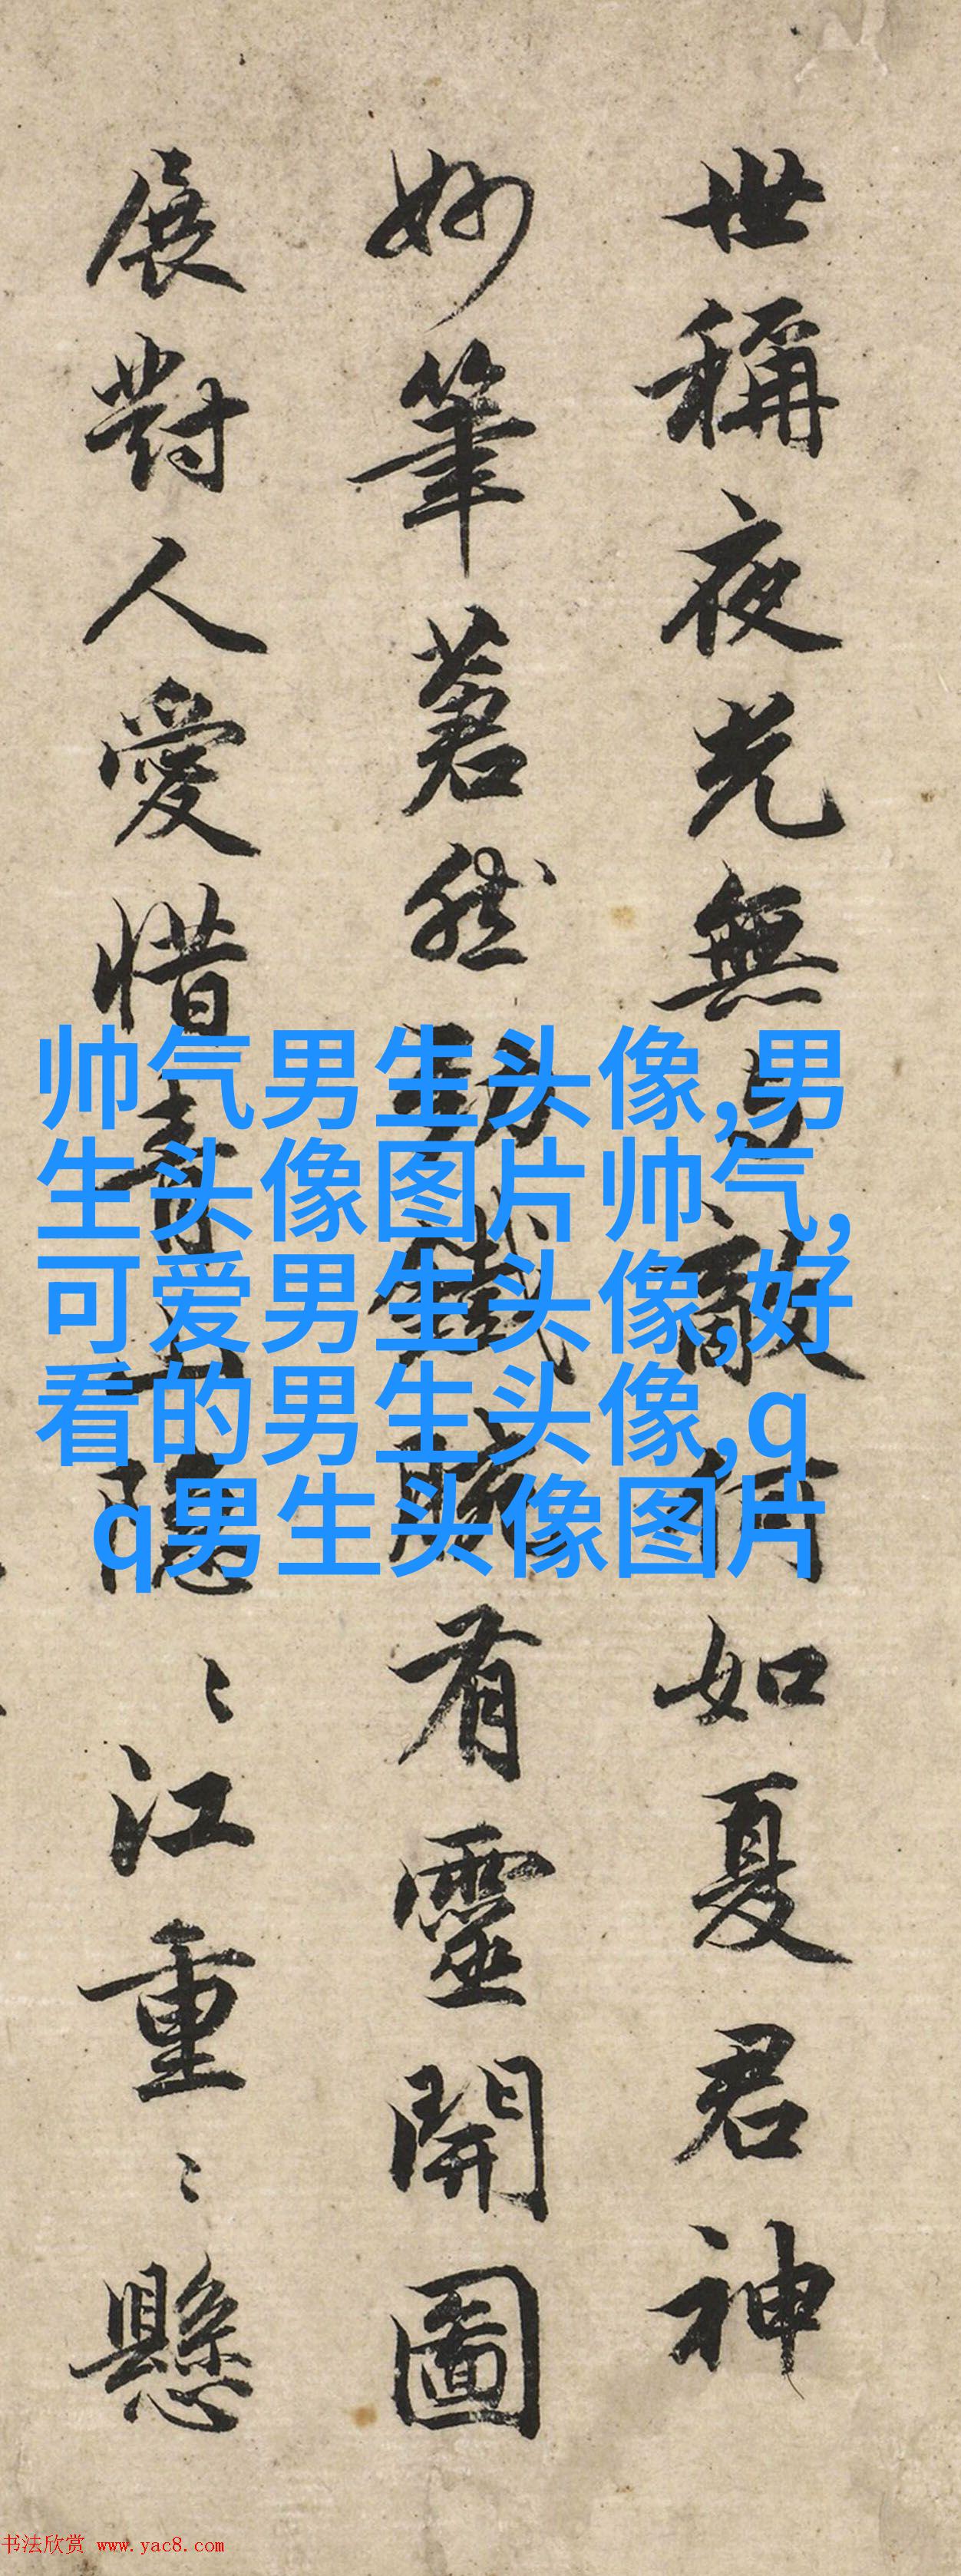 世稱夜光無与敵何如夏君神
妙筆著然動鐵腕有靈開圖
展對人愛惜青山隱〻江重〻懸
帅气男生头像,男
生头像图片帅气,
可爱男生头像,好
看的男生头像,q
q男生头像图片
书法欣赏 www.yac8.com